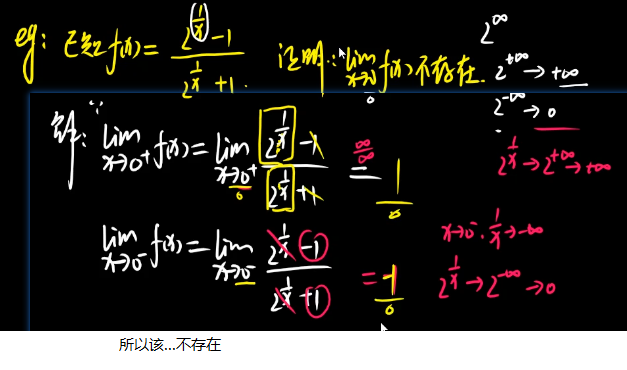 eg: 已知 f(x) = (2^(1/x) - 1)/(2^(1/x) + 1) 证明: lim x→0 f(x) 不存在.
2^∞
2^(+∞) → +∞
2^(-∞) → 0
解: ∵ lim x→0⁺ f(x) = lim x→0⁺ (2^(1/x) - 1)/(2^(1/x) + 1) ∞/∞ = 1
2^(1/x) → 2^(+∞) → +∞
lim x→0⁻ f(x) = lim x→0⁻ (2^(1/x) - 1)/(2^(1/x) + 1) = -1
x→0⁻. 1/x → -∞
2^(1/x) → 2^(-∞) → 0
所以该...不存在